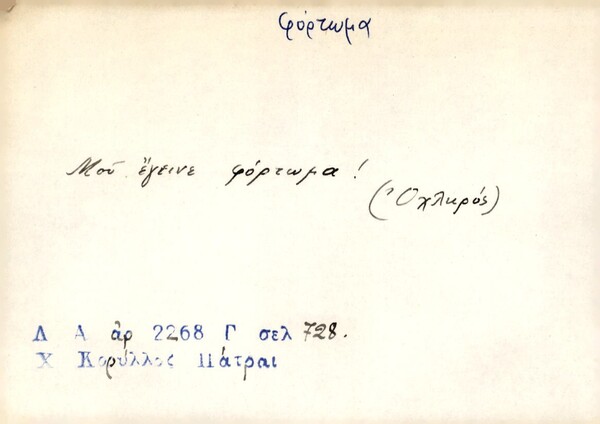 φόρτωμα
Μοῦ ἔγεινε φόρτωμα!
(Ὀχληρός)
Λ Α ἀρ 2268 Γ σελ 728.
Χ Κορύλλος Πάτραι